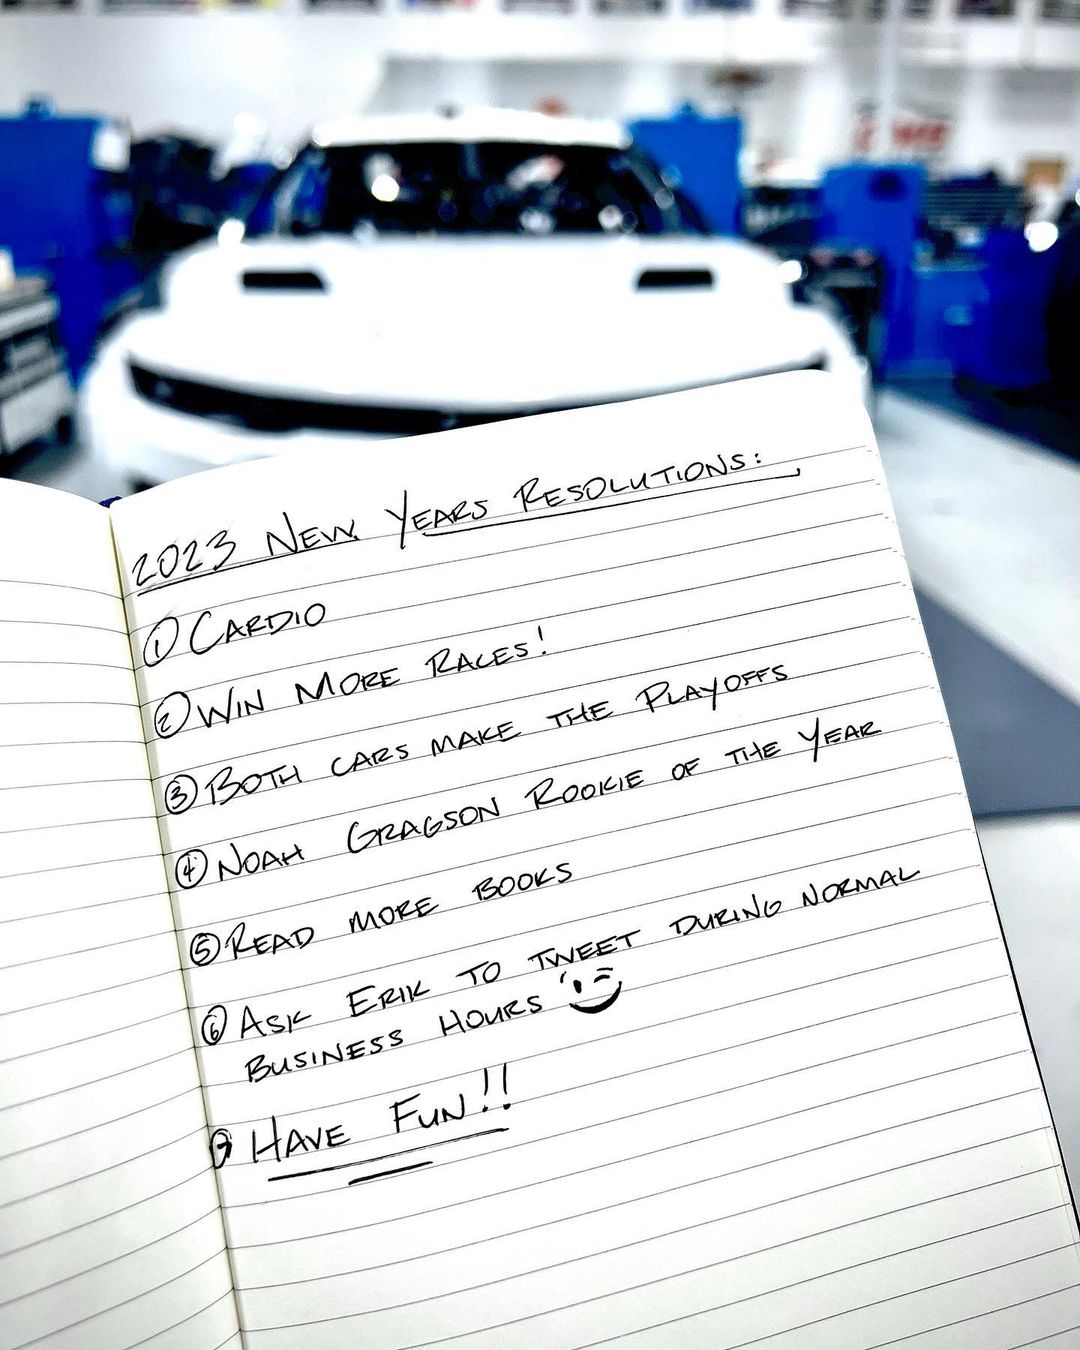 2023 NEW YEARS RESOLUTIONS:
① CARDIO
② WIN MORE RACES!
③ BOTH CARS MAKE THE PLAYOFFS
④ NOAH GRAGSON ROOKIE OF THE YEAR
⑤ READ MORE BOOKS
⑥ ASK ERIK TO TWEET DURING NORMAL
BUSINESS HOURS
⑦ HAVE FUN!!